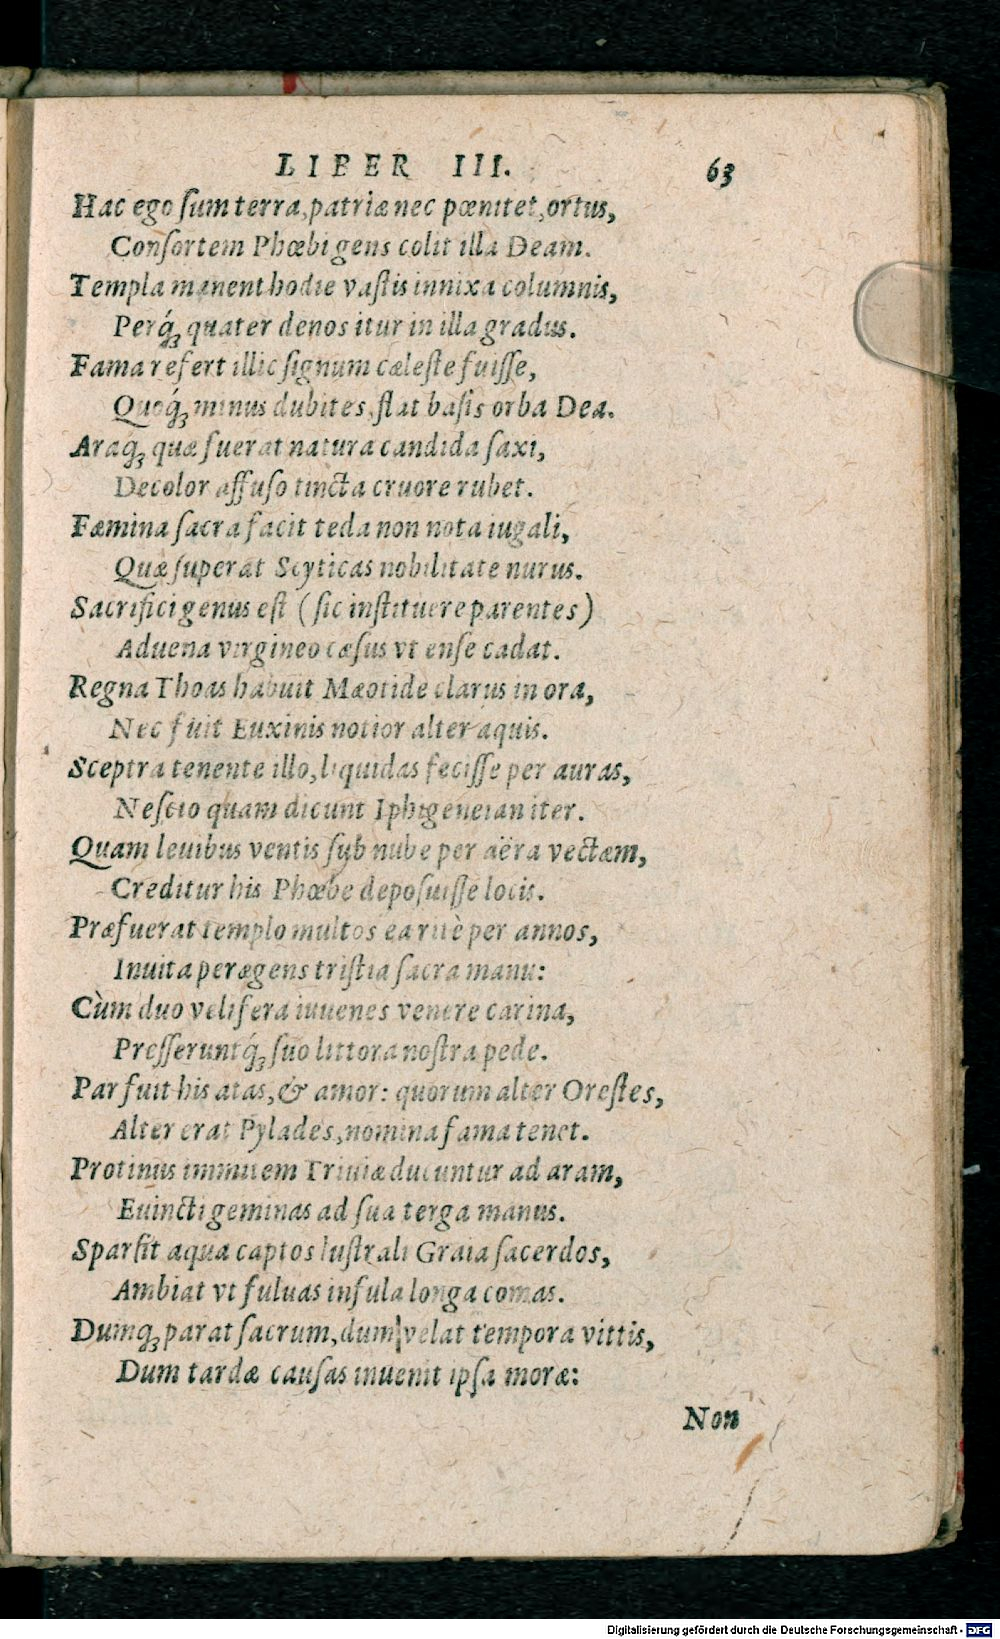 LIBER III. 63
Hac ego ſum terra, patriæ nec pœnitet, ortus,
Conſortem Phœbi gens colit illa Deam.
Templa manent hodie vaſtis innixa columnis,
Perq́ꝫ quater denos itur in illa gradus.
Fama refert illic ſignum cæleſte fuiſſe,
Quoq́ꝫ minus dubites, ſtat baſis orba Dea.
Araqꝫ quæ fuerat natura candida ſaxi,
Decolor affuſo tincta cruore rubet.
Fæmina ſacra facit teda non nota iugali,
Quæ ſuperat Scyticas nobilitate nurus.
Sacrifici genus eſt (ſic inſtituere parentes)
Aduena virgineo cæſus vt enſe cadat.
Regna Thoas habuit Mæotide clarus in ora,
Nec fuit Euxinis notior alter aquis.
Sceptra tenente illo, liquidas feciſſe per auras,
Neſcio quam dicunt Iphigeneian iter.
Quam leuibus ventis ſub nube per aëra vectam,
Creditur his Phœbe depoſuiſſe locis.
Præfuerat templo multos ea ritè per annos,
Inuita peragens triſtia ſacra manu:
Cùm duo velifera iuuenes venere carina,
Preſſeruntq́ꝫ ſuo littora noſtra pede.
Par fuit his ætas, & amor: quorum alter Oreſtes,
Alter erat Pylades, nomina fama tenet.
Protinus immitem Triuiæ ducuntur ad aram,
Euincti geminas ad ſua terga manus.
Sparſit aqua captos luſtrali Graia ſacerdos,
Ambiat vt fuluas infula longa comas.
Dumqꝫ parat ſacrum, dum velat tempora vittis,
Dum tardæ cauſas inuenit ipſa moræ:
Non
Digitalisierung gefördert durch die Deutsche Forschungsgemeinschaft - DFG